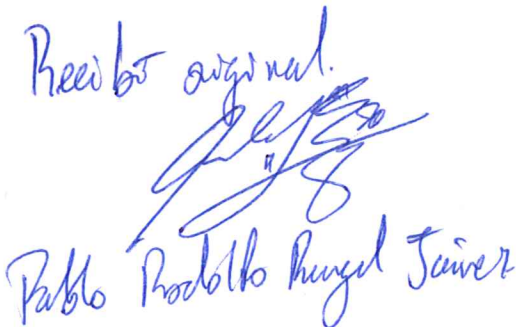 Recibó original.
Pablo Rodolfo Rangel